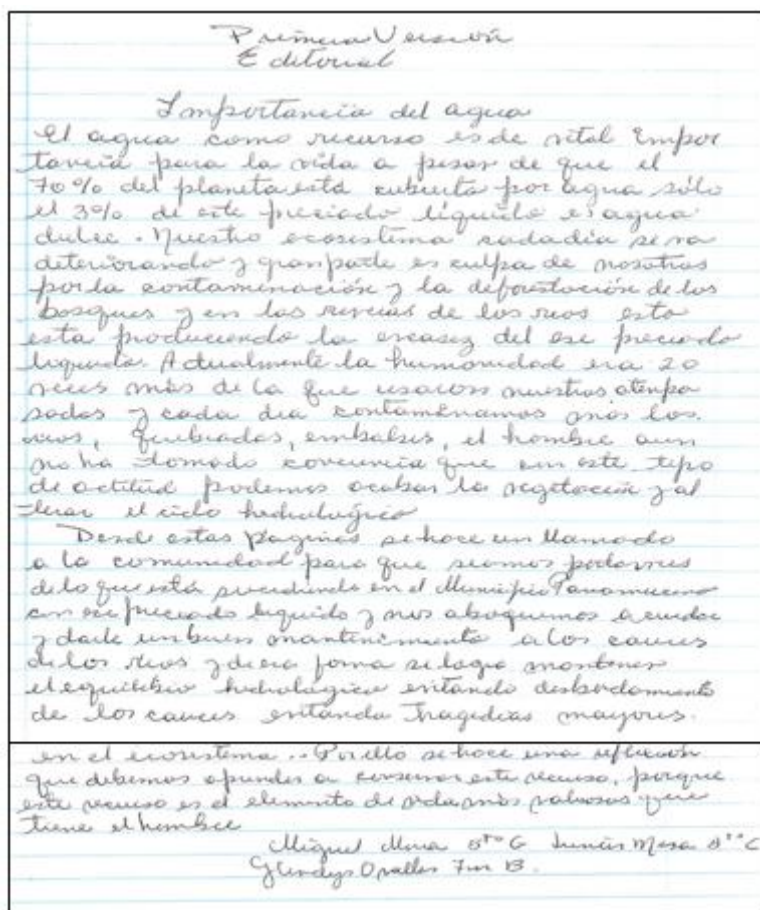 Primera Versión
Editorial
Importancia del agua
El agua como recurso es de vital Impor
tancia para la vida a pesar de que el
70% del planeta está cubierta por agua sólo
el 3% de este preciado líquido es agua
dulce. Nuestro ecosistema cada día se va
deteriorando y gran parte es culpa de nosotros
por la contaminación y la deforestación de los
bosques y en las de los rios esto
esta produciendo la escasez del ese preciado
liquido. Actualmente la humanidad 20
veces más de la que usaron nuestros atenpa
sados y cada dia contaminamos más los
rios, quebradas, embalses, el hombre aun
no ha tomado que con este tipo
de actitud podemos acabar la vegetación y al
terar el ciclo hidrológico
Desde estas páginas se hace un llamado
a la comunidad para que seamos
de lo que está sucediendo en el Municipio
con ese preciado liquido y nos aboquemos a cuidar
y darle un buen mantenimiento a los cauces
de los rios y de esa forma se logre mantener
el equilibrio hidrológico evitando desbordamiento
de los cauces evitando Tragedias mayores.
en el ecosistema.. Por ello se hace una reflexión
que debemos aprender a conservar este recurso, porque
este recurso es el elemento de vida más valiosos que
tiene el hombre
Miguel Mora 8vo C Mesa 8vo C
Glendys Ovalles 7mo B.